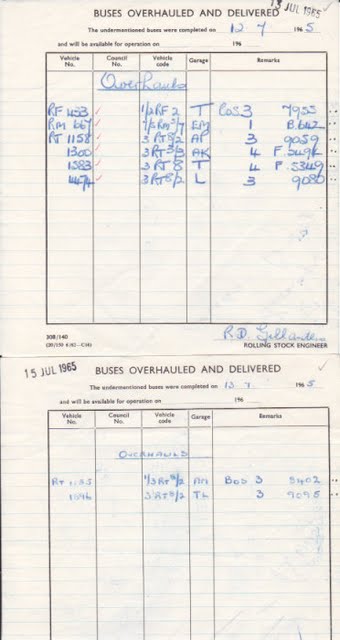 13 JUL 1965
BUSES OVERHAULED AND DELIVERED
The undermentioned buses were completed on 12 7 196 5
and will be available for operation on 196
Vehicle No. Council No. Vehicle code Garage Remarks
Overhauls
RF 453 ✓ 1/2RF2 T Cos 3 7955
RM 667 ✓ EM 1 B.642
RT 1158 ✓ 3 RT8/2 AP 3 9059
1300 ✓ AK 4 F
1383 ✓ 3 RT 8 T 4 F 5349
✓ 3 RT8/2 L 3 9080
308/140
ROLLING STOCK ENGINEER
15 JUL 1965
BUSES OVERHAULED AND DELIVERED
The undermentioned buses were completed on 13. 7. 196 5
and will be available for operation on 196
Vehicle No. Council No. Vehicle code Garage Remarks
OVERHAULS
RT 1155 AM Bos 3 5402
1596 3 RT8/2 TL 3 9095